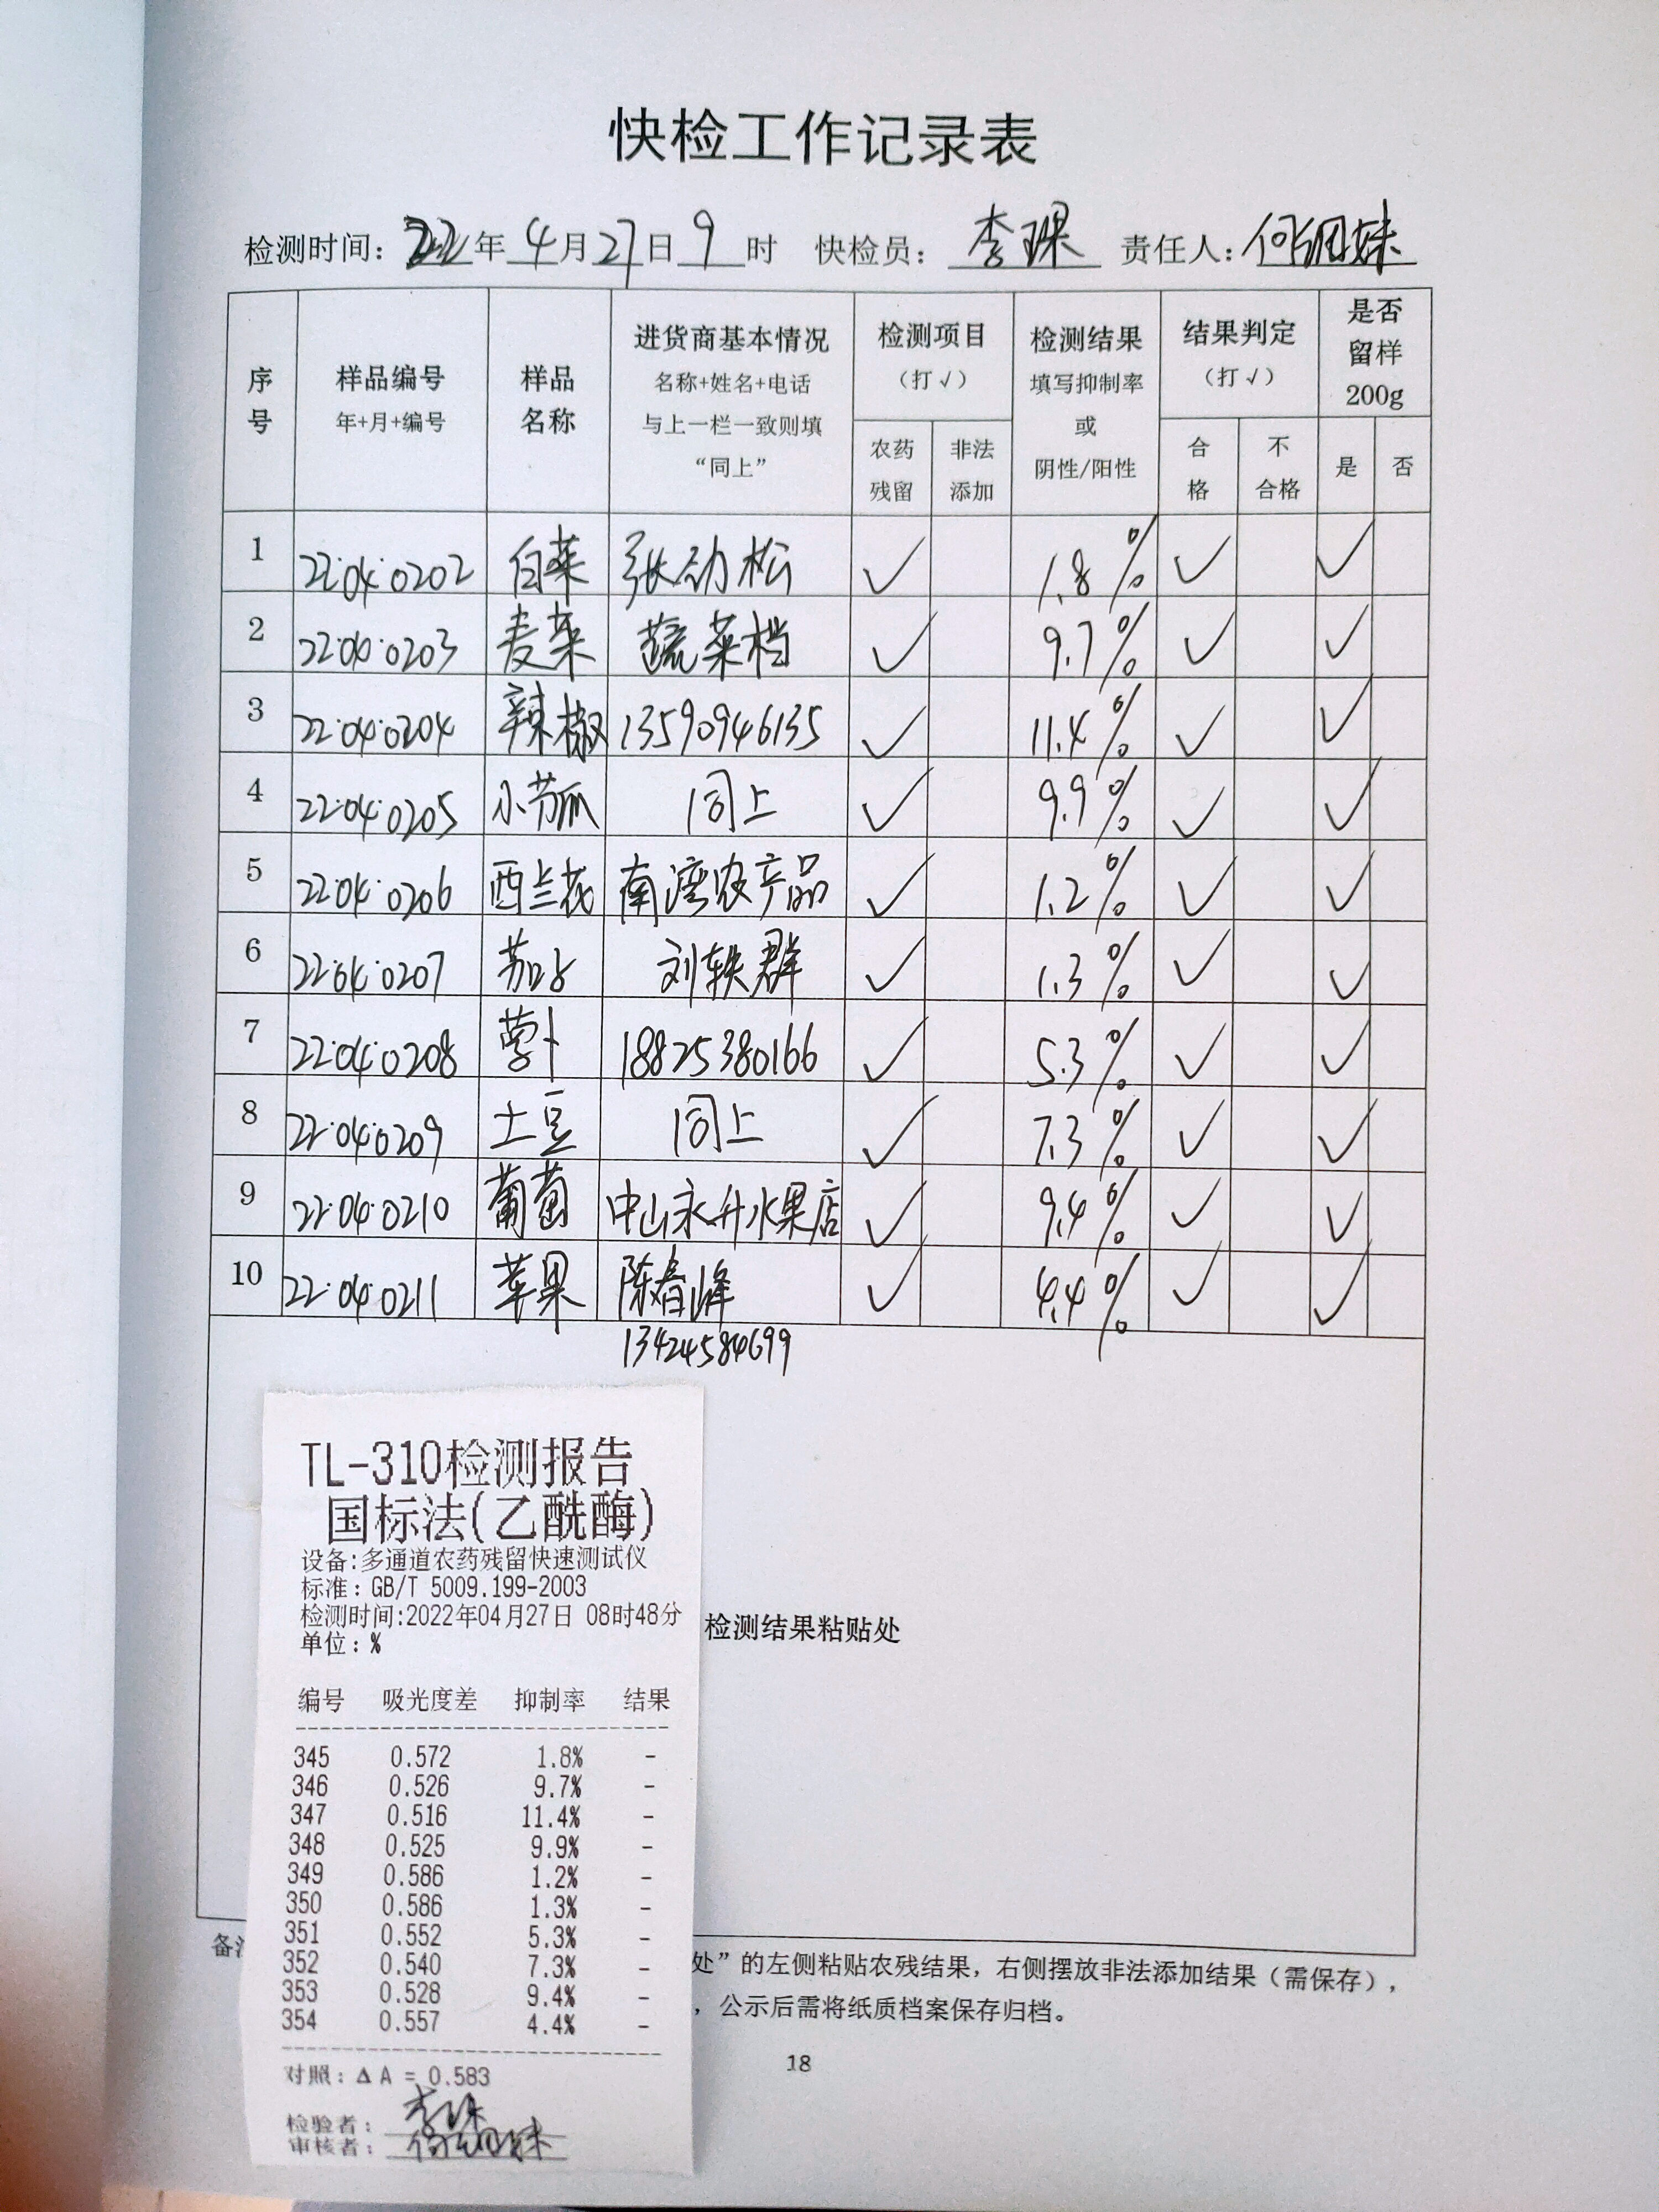 快检工作记录表
检测时间：22年4月27日9时 快检员：李琛 责任人：何细妹
序号 样品编号 年+月+编号 样品名称 进货商基本情况 名称+姓名+电话 与上一栏一致则填“同上” 检测项目（打√） 农药残留 非法添加 检测结果 填写抑制率或阴性/阳性 结果判定（打√） 合格 不合格 是否留样200g 是 否
1 22·04·0202 白菜 张劲松 ✓ 1.8% ✓ ✓
2 22·04·0203 麦菜 蔬菜档 ✓ 9.7% ✓ ✓
3 22·04·0204 辣椒 13590946135 ✓ 11.4% ✓ ✓
4 22·04·0205 小节瓜 同上 ✓ 9.9% ✓ ✓
5 22·04·0206 西兰花 南湾农产品 ✓ 1.2% ✓ ✓
6 22·04·0207 茄子 刘轶群 ✓ 1.3% ✓ ✓
7 22·04·0208 萝卜 18825380166 ✓ 5.3% ✓ ✓
8 22·04·0209 土豆 同上 ✓ 7.3% ✓ ✓
9 22·04·0210 葡萄 中山永升水果店 ✓ 9.4% ✓ ✓
10 22·04·0211 苹果 陈春峰 ✓ 4.4% ✓ ✓
13424584699
TL-310检测报告
国标法(乙酰酶)
设备:多通道农药残留快速测试仪
标准：GB/T 5009.199-2003
检测时间:2022年04月27日 08时48分
单位：%
检测结果粘贴处
编号 吸光度差 抑制率 结果
345 0.572 1.8% -
346 0.526 9.7% -
347 0.516 11.4% -
348 0.525 9.9% -
349 0.586 1.2% -
350 0.586 1.3% -
351 0.552 5.3% -
352 0.540 7.3% -
353 0.528 9.4% -
354 0.557 4.4% -
对照：ΔA = 0.583
检验者：李琛
审核者：何细妹
备
处”的左侧粘贴农残结果，右侧摆放非法添加结果（需保存），
，公示后需将纸质档案保存归档。
18